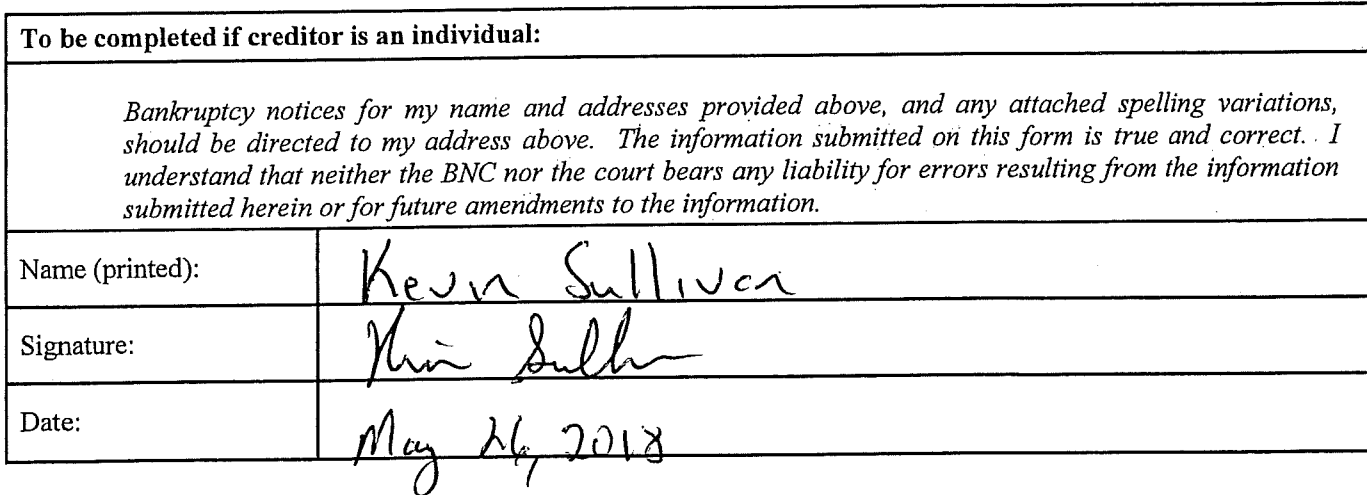 To be completed if creditor is an individual:
Bankruptcy notices for my name and addresses provided above, and any attached spelling variations,
should be directed to my address above. The information submitted on this form is true and correct. I
understand that neither the BNC nor the court bears any liability for errors resulting from the information
submitted herein or for future amendments to the information.
Name (printed): Kevin Sullivan
Signature: Kevin Sullivan
Date: May 26, 2018